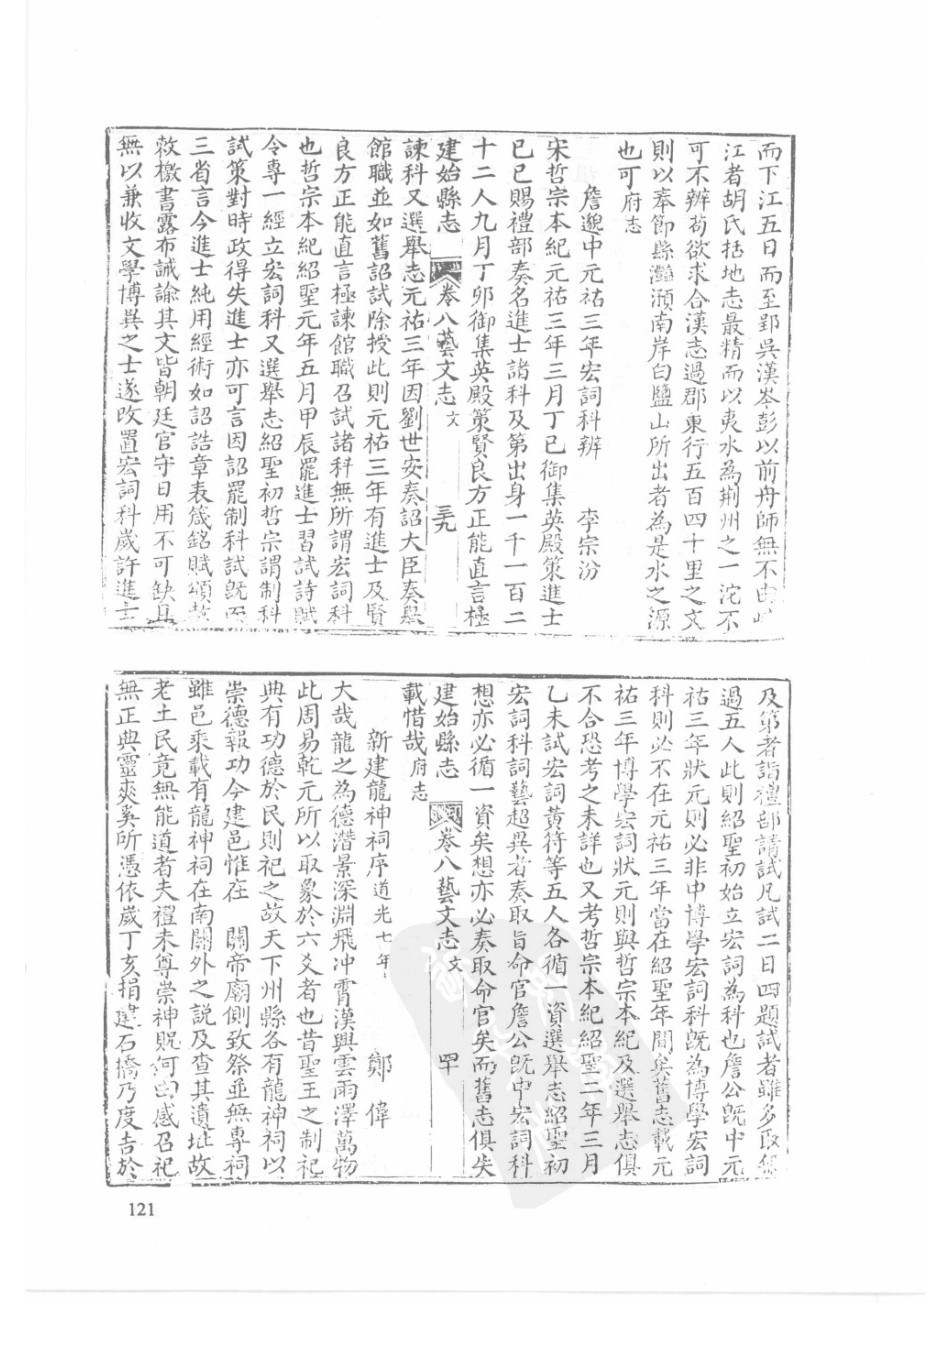 而下江五日而至郢吳漢岑彭以前舟師無不由
江者胡氏括地志最精而以夷水為荆州之一沱不
可不辨苟欲求合漢志過郡東行五百四十里之文
則以奉節縣灩澦南岸白鹽山所出者為是水之源
也可府志
詹邈中元祐三年宏詞科辨 李宗汾
宋哲宗本紀元祐三年三月丁巳御集英殿策進士
己巳賜禮部奏名進士諸科及第出身一千一百二
十二人九月丁卯御集英殿策賢良方正能直言極
建始縣志 卷八藝文志 文 三九
諫科又選舉志元祐三年因劉世安奏詔大臣奏舉
館職並如舊詔試除授此則元祐三年有進士及賢
良方正能直言極諫館職召試諸科無所謂宏詞科
也哲宗本紀紹聖元年五月甲辰罷進士習試詩賦
令專一經立宏詞科又選舉志紹聖初哲宗謂制科
試策對時政得失進士亦可言因詔罷制科試既而
三省言今進士純用經術如詔誥章表箴銘賦頌赦
敕檄書露布誡諭其文皆朝廷官守日用不可缺且
無以兼收文學博異之士遂改置宏詞科歲許進士
及第者詣禮部請試凡試二日四題試者雖多取無
過五人此則紹聖初始立宏詞為科也詹公既中元
祐三年狀元則必非中博學宏詞科既為博學宏詞
科則必不在元祐三年當在紹聖年間矣舊志載元
祐三年博學宏詞狀元則與哲宗本紀及選舉志俱
不合恐考之未詳也又考哲宗本紀紹聖二年三月
乙未試宏詞黃符等五人各循一資選舉志紹聖初
宏詞科詞藝超異者奏取旨命官詹公既中宏詞科
想亦必循一資矣想亦必奏取命官矣而舊志俱失
建始縣志 卷八藝文志 文 四十
載惜哉府志
新建龍神祠序道光七年 鄭偉
大哉龍之為德潛景深淵飛冲霄漢興雲雨澤萬物
此周易乾元所以取象於六爻者也昔聖王之制祀
典有功德於民則祀之故天下州縣各有龍神祠以
崇德報功今建邑惟在 關帝廟側致祭並無專祠
雖邑乘載有龍神祠在南關外之説及查其遺址故
老土民竟無能道者夫禮未尊崇神貺何由感召祀
無正典靈爽奚所憑依歲丁亥捐建石橋乃度吉於
121